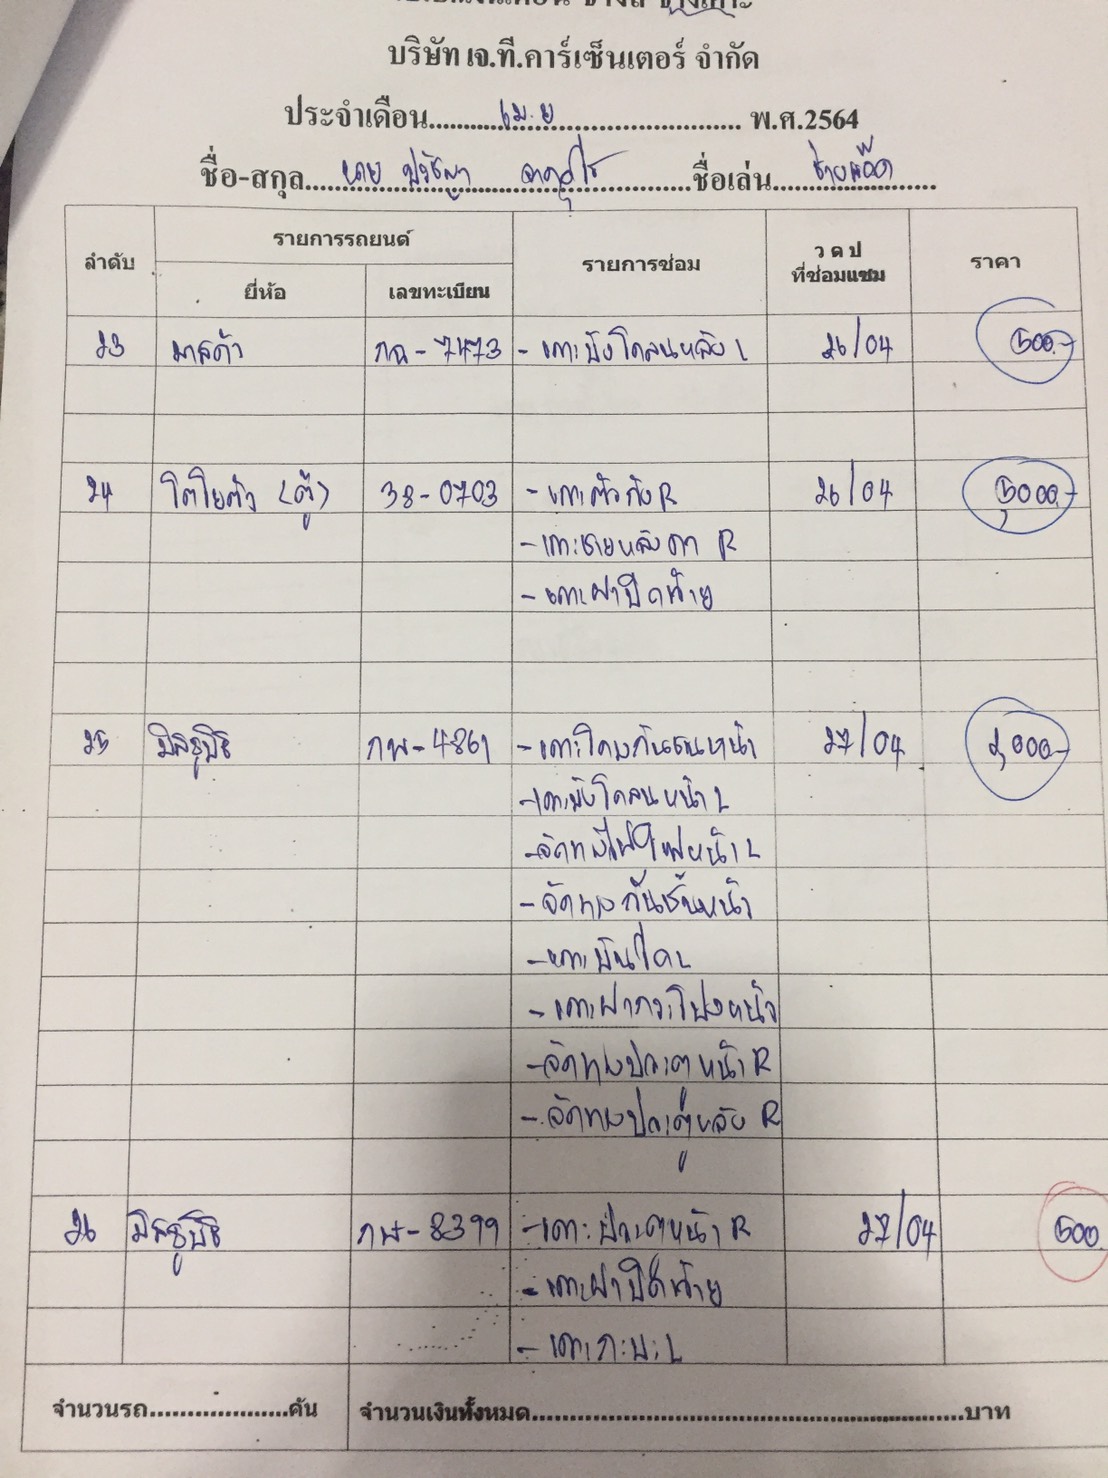 บริษัท เจ.ที.คาร์เซ็นเตอร์ จำกัด
ประจำเดือน......เม.ย...... พ.ศ.2564
ชื่อ-สกุล......นาย ปรัชญา......ชื่อเล่น......ช่างแอ๊ด......
ลำดับ รายการรถยนต์ รายการซ่อม ว ด ป ที่ซ่อมแซม ราคา
ยี่ห้อ เลขทะเบียน
23 มาสด้า กฉ-7473 - เคาะบังโคลนหลัง L 26/04 500.-
24 โตโยต้า (ตู้) 38-0703 - เคาะตัวถัง R 26/04 5,000.-
- เคาะชายหลังคา R
- เคาะฝาปิดท้าย
25 มิตซูบิชิ กพ-4861 - เคาะโครงกันชนหน้า 27/04 2,000.-
- เคาะบังโคลนหน้า L
- จัดทรงไฟหน้า L
- จัดทรงกันชนหน้า
- เคาะบันได L
- เคาะฝากระโปรงหน้า
- จัดทรงประตูหน้า R
- จัดทรงประตูหลัง R
26 มิตซูบิชิ กพ-8399 - เคาะประตูหน้า R 27/04 500.
- เคาะฝาปิดท้าย
- เคาะกะบะ L
จำนวนรถ......คัน จำนวนเงินทั้งหมด......บาท